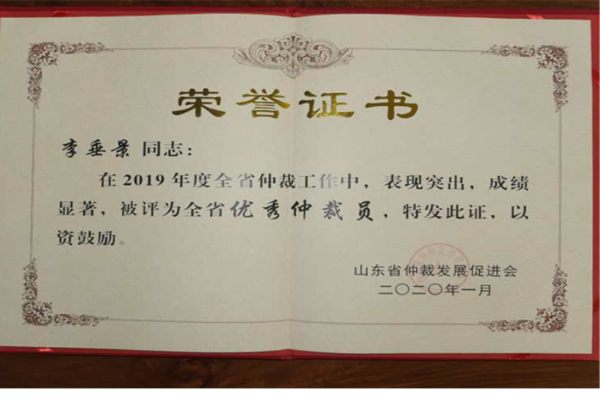 荣誉证书
李垂景同志：
在2019年度全省仲裁工作中，表现突出，成绩
显著，被评为全省优秀仲裁员，特发此证，以
资鼓励。
山东省仲裁发展促进会
二〇二〇年一月